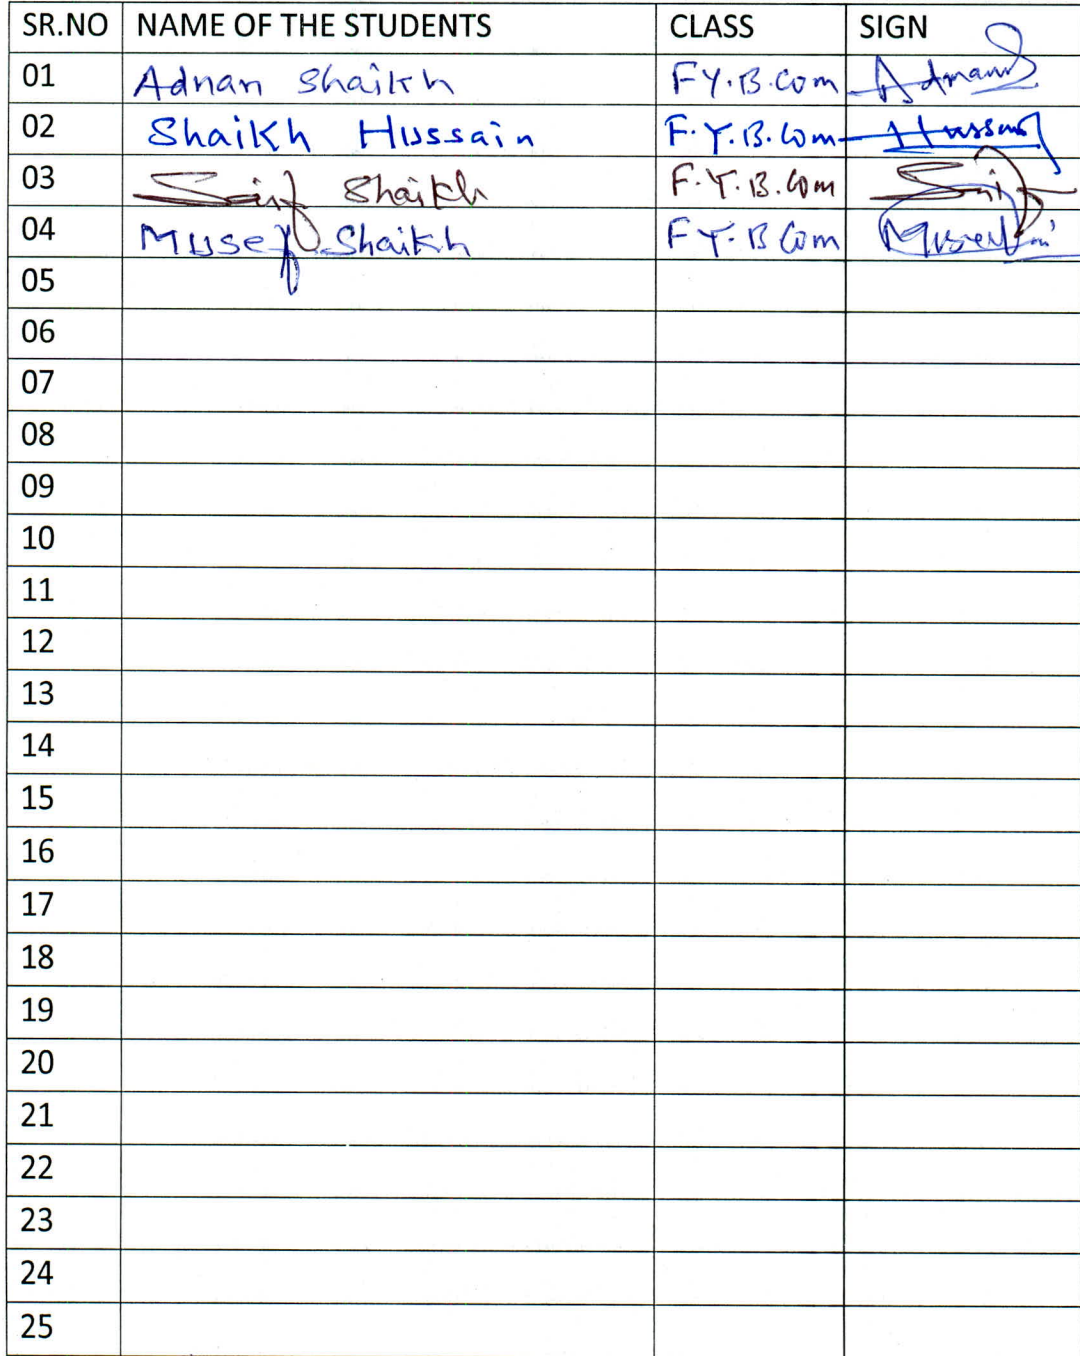 SR.NO NAME OF THE STUDENTS CLASS SIGN
01 Adnan Shaikh F Y.B.Com Adnan
02 Shaikh Hussain F.Y.B.Com Hussain
03 Saif Shaikh F.Y.B.Com Saif
04 Musef Shaikh F Y.B Com
05
06
07
08
09
10
11
12
13
14
15
16
17
18
19
20
21
22
23
24
25